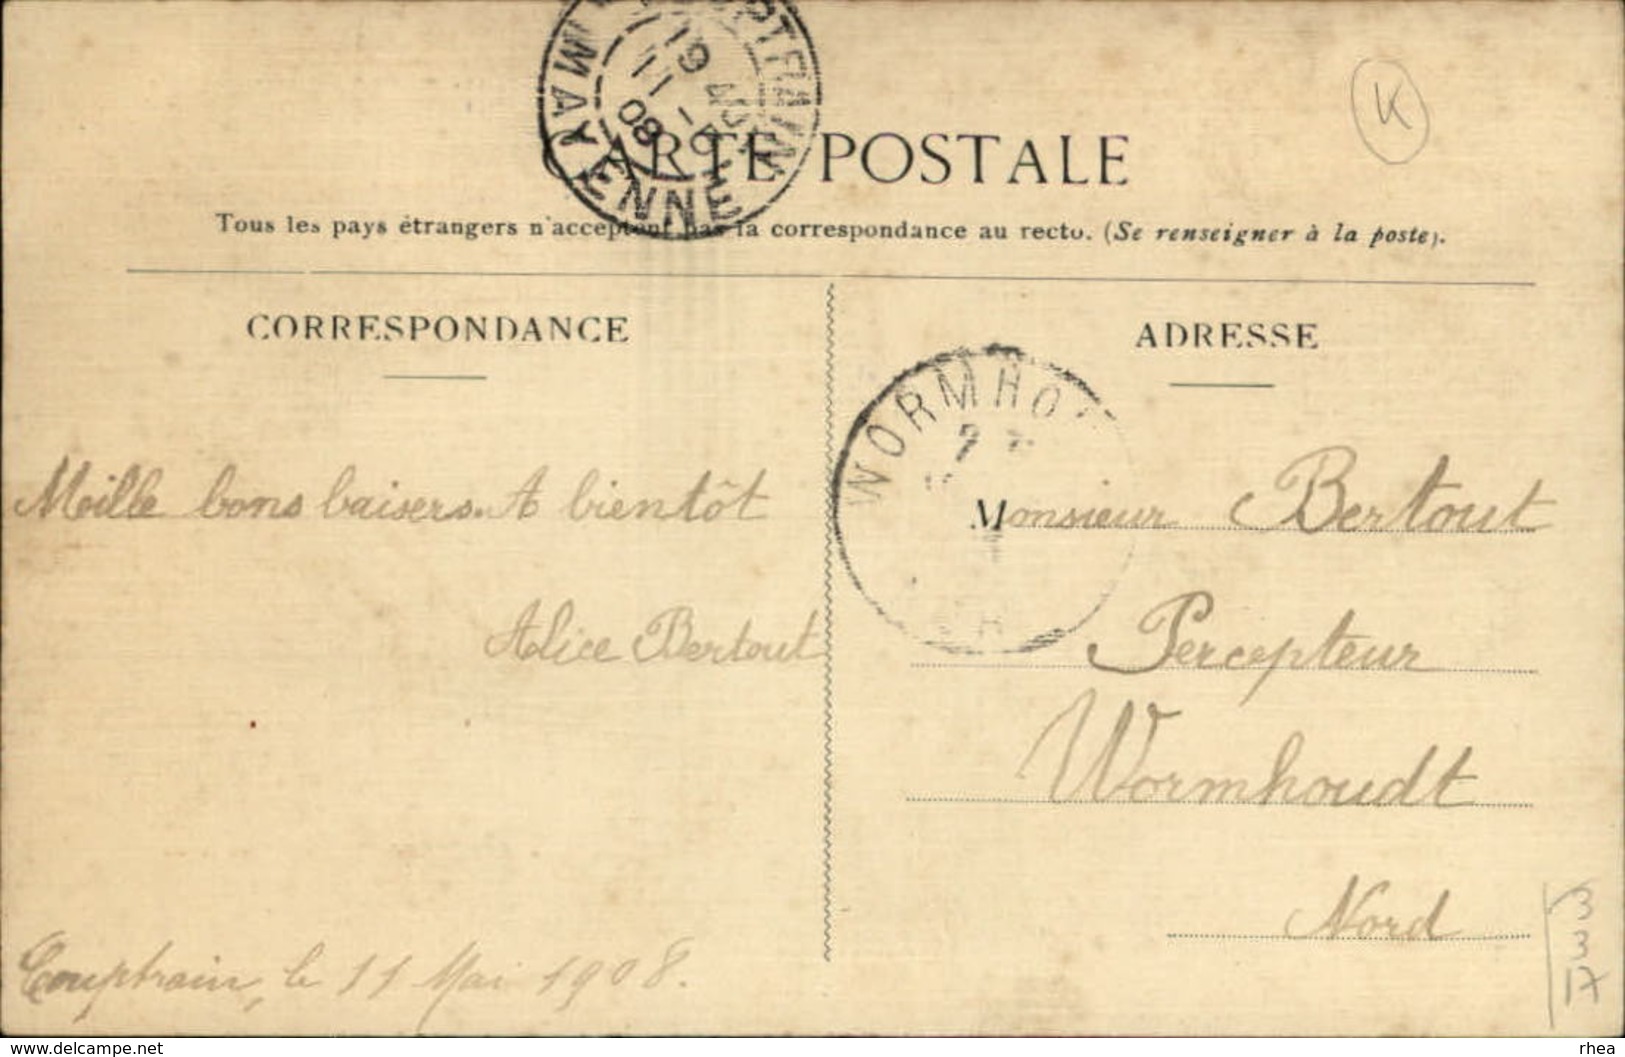 MAYENNE
19
11
08
K
CARTE POSTALE
Tous les pays étrangers n'acceptent pas la correspondance au recto. (Se renseigner à la poste).
CORRESPONDANCE
ADRESSE
WORMHO
Mille bons baisers. A bientôt
Alice Bertout
Couptrain, le 11 Mai 1908.
Monsieur Bertout
Percepteur
Wormhoudt
Nord
3
3
17
www.delcampe.net
rhea